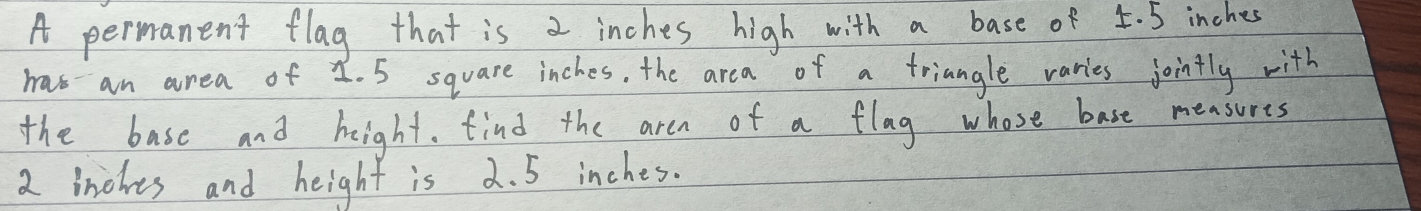 A permanent flag that is 2 inches high with a base of 1.5 inches
has an area of 1.5 square inches. the area of a triangle varies jointly with
the base and height. find the area of a flag whose base measures
2 inches and height is 2.5 inches.